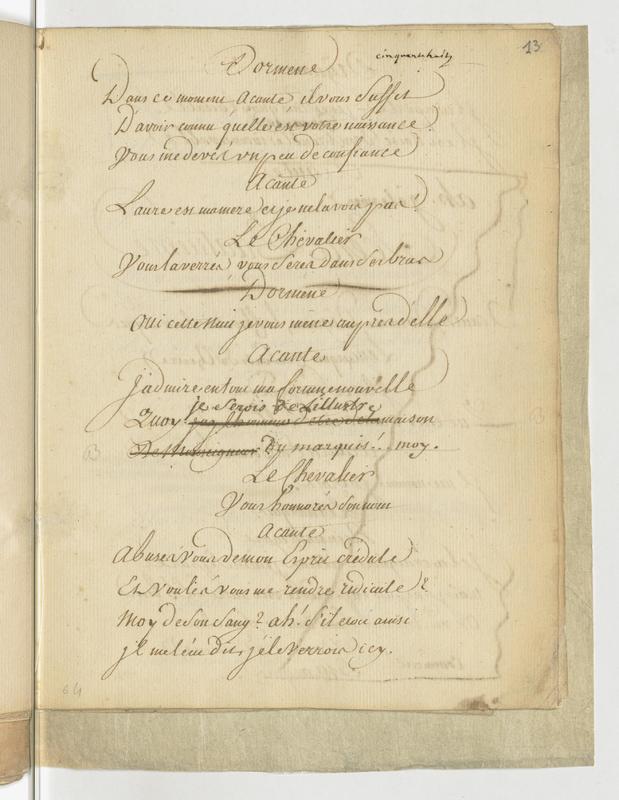 13
Dormene
Dans ce moment Acante il vous suffit
D'avoir connu quelle est votre naissance.
Vous me devez un peu de confiance
Acante
Laure est ma mere et je ne la vois pas!
Le Chevalier
Vous la verrez, vous serez dans ses bras
Dormene
Oui cette nuit je vous mene auprès d'elle
Acante
J'admire en tout ma fortune nouvelle
je serois de l'illustre
Quoy j'ay l'honneur d'etre de la maison
De Monseigneur Du marquis!.. moy.
Le Chevalier
Vous honorez son nom
Acante
Abusez vous de mon Esprit crédule
Et voulez vous me rendre ridicule?
Moy de son sang? ah! s'il etoit ainsi
il me l'eut dit, je le verrois icy.
64